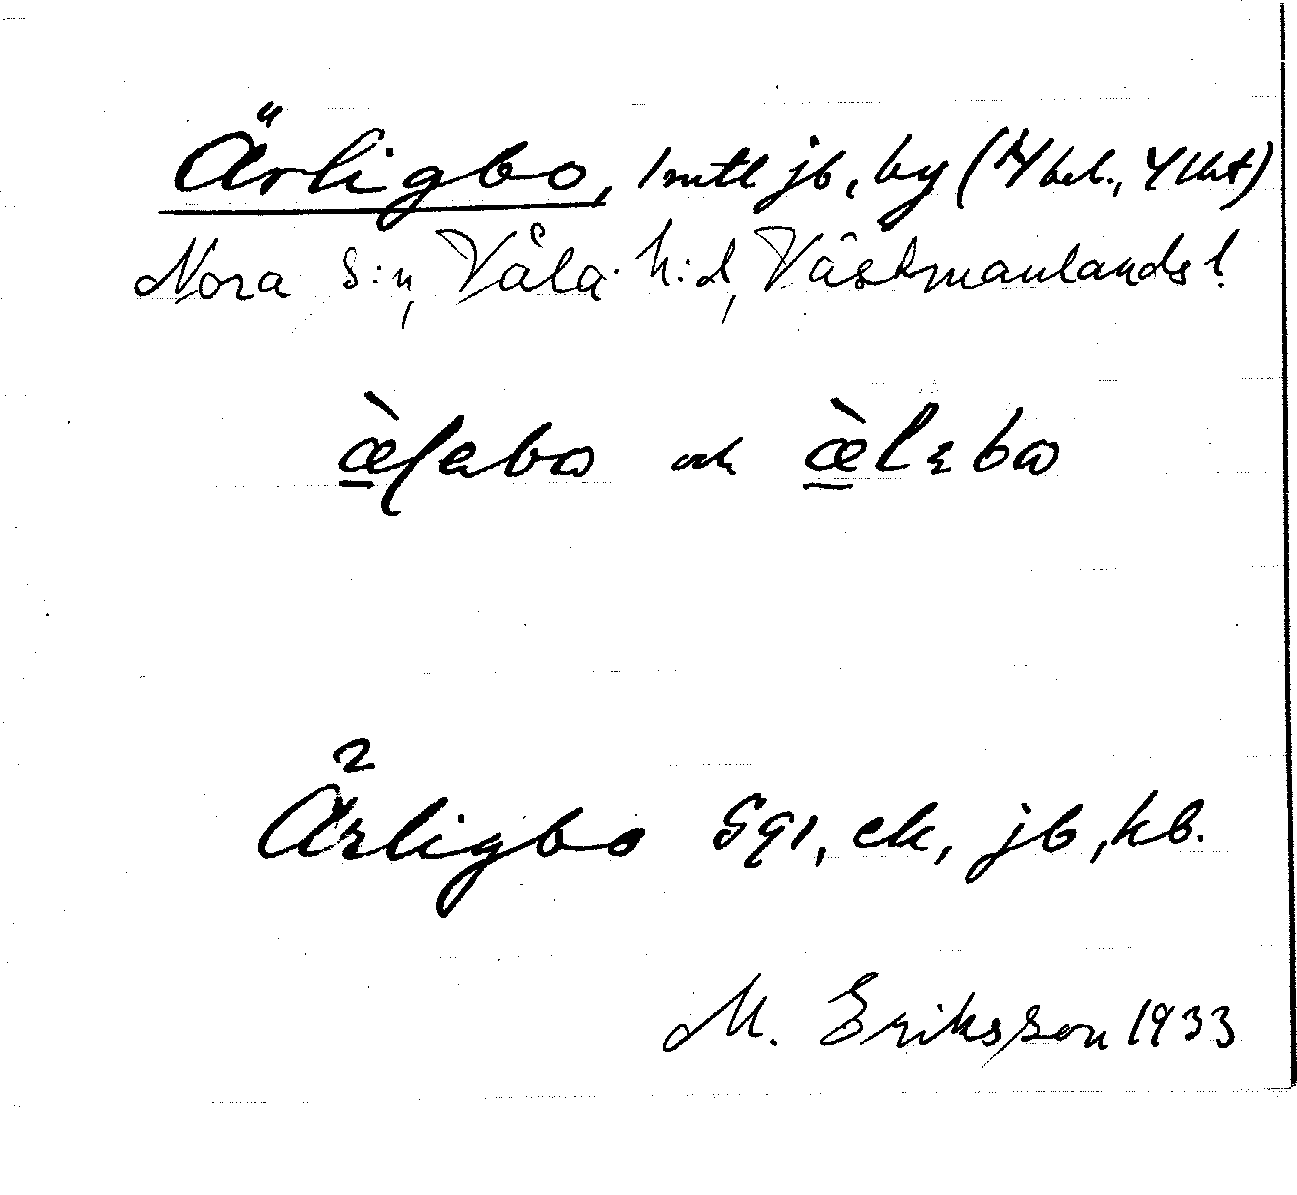 Ärligbo, 1 mtl jb, by (4 bel., 4 lht)
Nora s:n, Våla h:d, Västmanlands l.
æ̀ɭabω och æ̀lɛbω
2
Ärligbo Sq1, ek, jb, kb.
M. Eriksson 1933